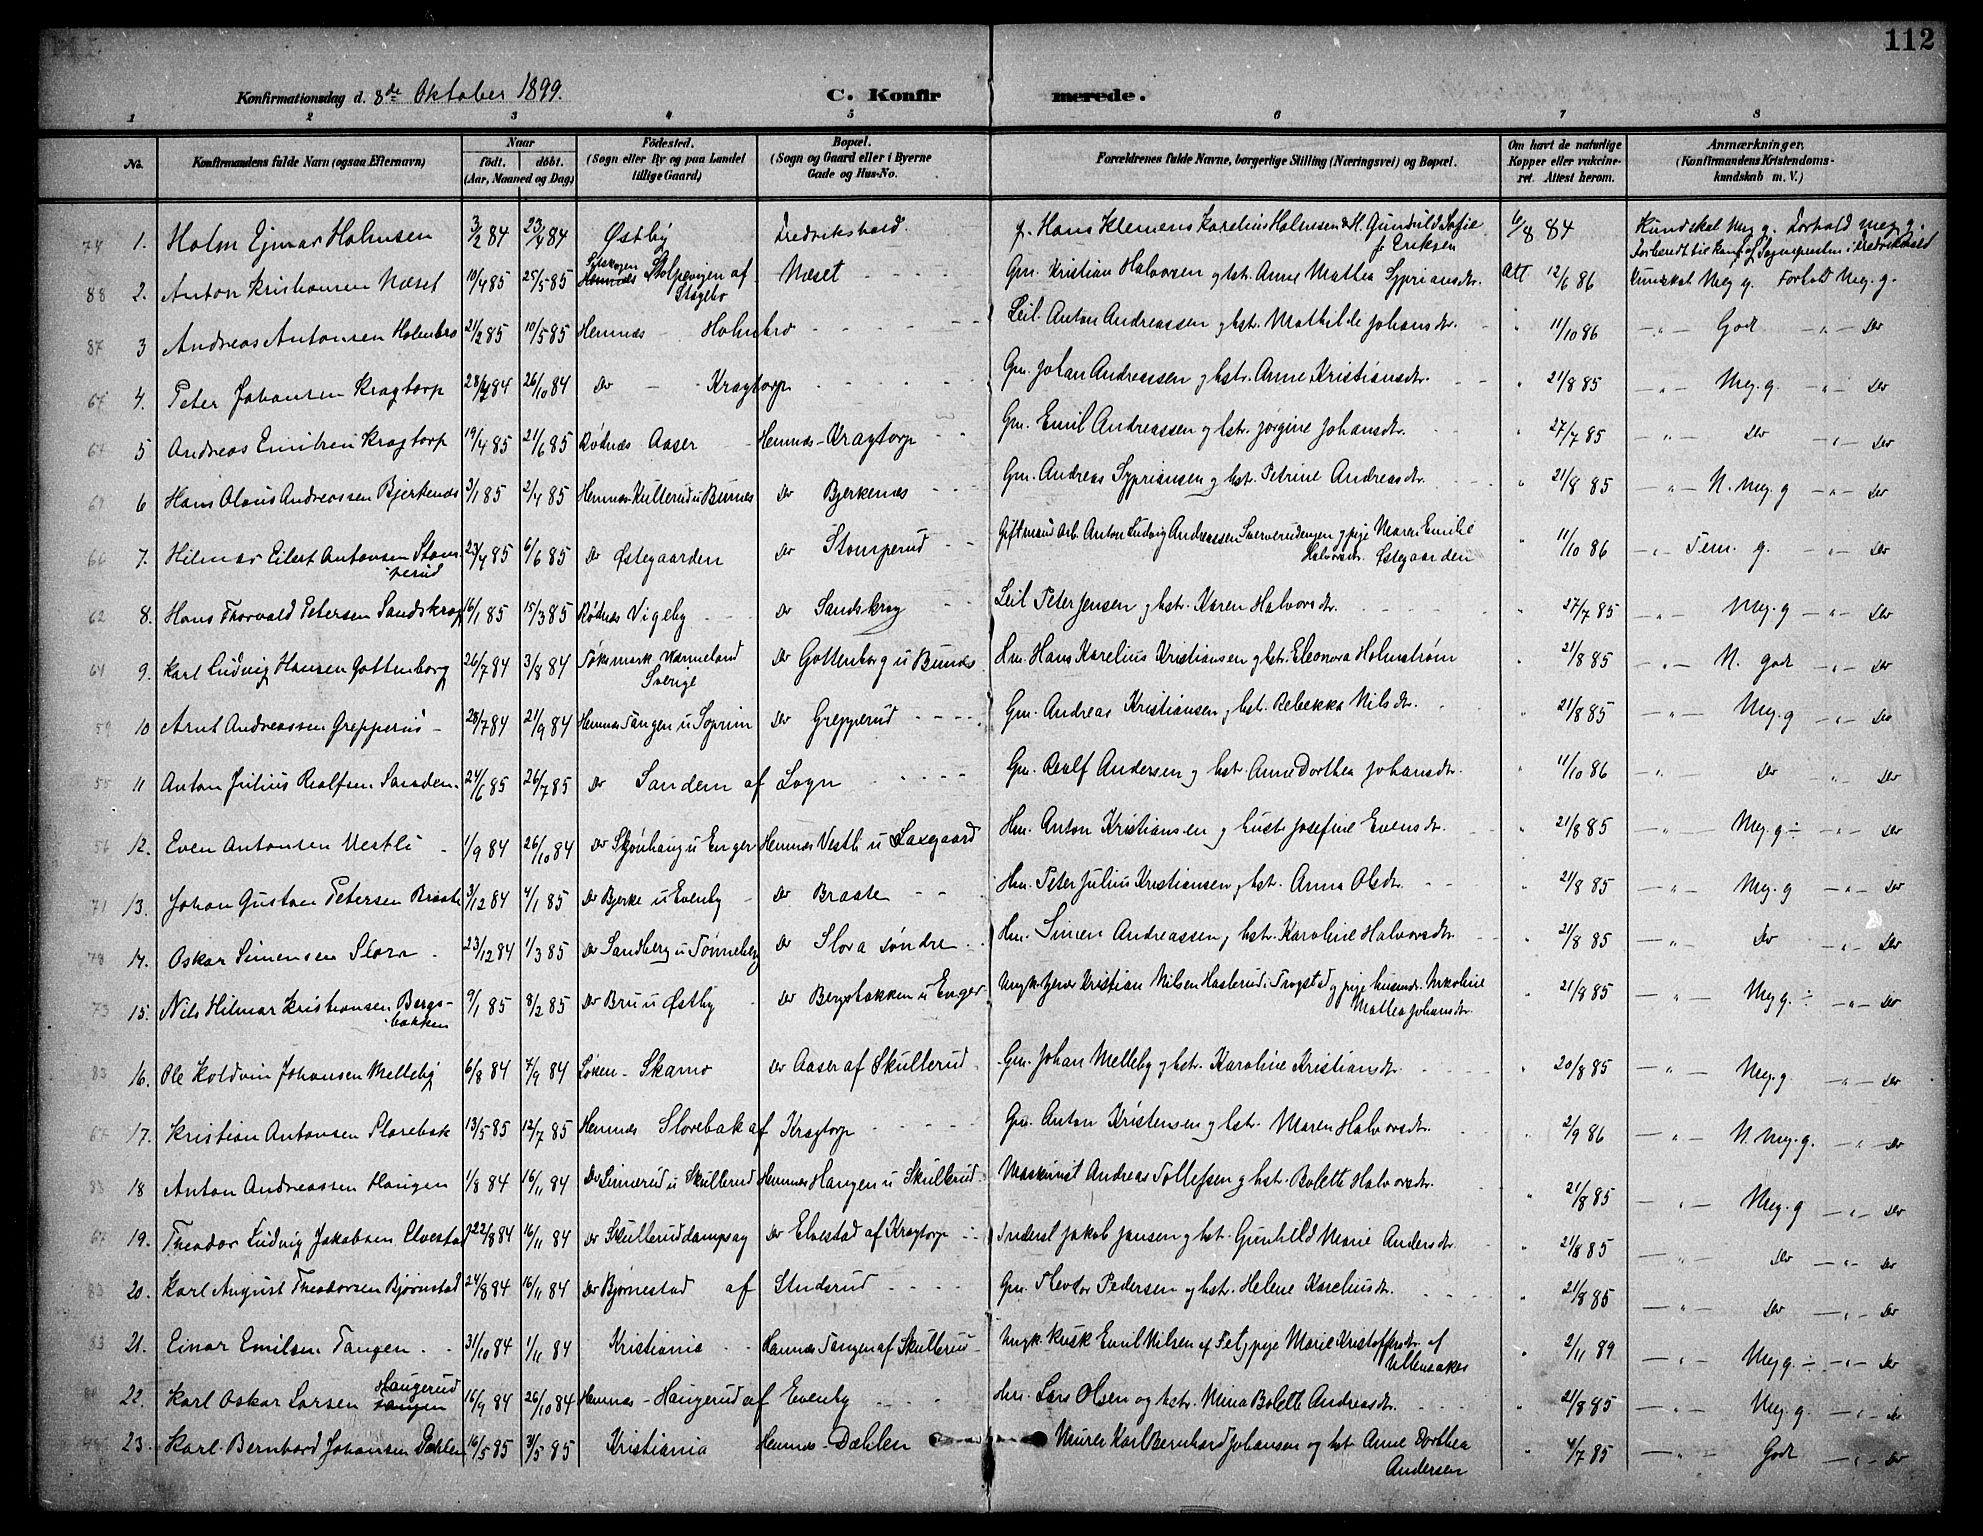 112
Konfirmationsdag d. 8de Oktober 1899. C. Konfirmerede.
1 2 3 4 5 6 7 8
No. Konfirmandens fulde Navn (ogsaa Efternavn) Naar født. døbt. (Aar, Maaned og Dag) Fødested. (Sogn eller By og paa Landet tillige Gaard) Bopæl. (Sogn og Gaard eller i Byerne Gade og Hus-No. Forældrenes fulde Navne, borgerlige Stilling (Næringsvei) og Bopæl. Om havt de naturlige Kopper eller vakcineret. Attest herom. Anmærkninger. (Konfirmandens Kristendomskundskab m. V.)
74 1. Holm Ejmar Holmsen 3/2 84 23/4 84 Østby Fredrikshald. g. Hans Klemens Karelius Holmsen & H. Gunhild Sofie f Eriksen 6/8 84 Kundskab Meg g. Forhold meg g.
Forberedt til Konf. af Sognepresten i Fredrikshald
88 2. Anton Kristiansen Næset 10/4 85 25/5 85 Stolpevigen af Næset Gm. Kristian Halvorsen og hst. Anne Mathea Sypriansdtr. Att 12/6 86 Kundskab Meg g. Forhold Meg. g.
87 3 Andreas Antonsen Holmbro 21/2 85 10/5 85 Hemnæs Holmbro Leil. Anton Andreassen og hst. Mathilde Johansdtr. " 11/10 86 - " - God - " - Do
67 4. Peter Johansen Kragtorp 28/4 84 26/10 84 Do - Kragtorp Gm. Johan Andreassen og hst. Anne Kristiansdtr. " 21/8 85 - " - Meg. g. - " - Do
67 5 Andreas Emilsen Kragtorp 19/4 85 21/6 85 Rødnæs Aaser Hemnæs - Kragtorp Gm. Emil Andreassen og hst. Jørgine Johansdtr. " 27/7 85 - " - Do - " - Do
6 Hans Olaus Andreassen Bjerkenæs 3/1 85 2/4 85 Hemnæs Kullerud u Bunæs Do Bjerkenæs Gm. Andreas Syprianssen og hst. Petrine Andreasdtr. " 21/8 85 - " - N. Meg. g - " - Do
60 7. Hilmar Eilert Antonsen Stomperud 23/4 85 6/6 85 Do Østegaarden Do Stomperud Giftmand Arb. Anton Ludvig Andreassen og pige Maren Emilie Halvorsdtr. Østegaarden " 11/10 86 - " - Tem. g. - " - Do
62 8. Hans Thorvald Petersen Sandskrog 16/1 85 15/3 85 Rødnæs Vigeby Do Sandskrog Leil Peter Jensen og hst. Karen Halvorsdtr. " 27/7 85 - " - Meg. g - " - Do
64 9. Karl Ludvig Hansen Gottenborg 26/7 84 3/8 84 Töksmark Värmeland Sverige Do Gottenborg u Bunæs Hm. Hans Karelius Kristiansen og hst. Eleonora Holmstrøm " 21/8 85 - " - N. God - " - Do
59 10 Arnt Andreassen Grepperud 28/7 84 21/9 84 Hemnæs Tangen u Soprim Do Grepperud Gm. Andreas Kristiansen og hst. Rebekka Nilsdtr. " 21/8 85 - " - Meg. g - " - Do
55 11 Anton Julius Realfsen Sanden 24/6 85 26/7 85 Do Sanden af Sogn Gm. Realf Andersen og hst. Anne Dorthea Johansdtr. " 11/10 86 - " - Do - " - Do
56 12. Even Antonsen Vestli 1/9 84 26/10 84 Do Skjønhaug u Enger Hemnæs Vestli u Laxgaard Hm. Anton Kristiansen og hustr. Josefine Evensdtr. " 21/8 85 - " - Meg. g ÷ - " - Do
71 13. Johan Gustav Petersen Braate 3/12 84 4/1 85 Do Bjerke u Evenby Do Braate Hm. Peter Julius Kristiansen og hst. Anna Olsdtr. " 21/8 85 - " - Meg. g - " - Do
14. Oskar Simensen Slora 23/12 84 1/3 85 Do Sandberg u Tønneberg Do Slora søndre Hm. Simen Andreassen og hst. Karoline Halvorsdtr. " 21/8 85 - " - Do - " - Do
73 15. Nils Hilmar Kristiansen Bergsbakken 9/1 85 8/2 85 Do Bru u Østby Do Bergsbakken u Enger Ungk. Kristian Nilsen Haslerud i Trøgstad og pige Nikoline Mathea Johansdtr. " 21/8 85 - " - Meg g. ÷ - " - Do
83 16. Ole Koldvin Johansen Melleby 6/8 84 7/9 84 Løken - Skamo Do Aaser af Skullerud Gm. Johan Melleby og hst. Karoline Kristiansdtr. " 20/8 85 - " - Meg. g - " - Do
67 17. Kristian Antonsen Slorebak 13/5 85 12/7 85 Hemnæs Slorebak af Kragtorp Gm. Anton Kristensen og hst. Maren Halvorsdtr. " 2/9 86 - " - N. Meg. g. - " - Do
83 18 Anton Andreassen Haugen 1/8 84 16/11 84 Do Linnerud u Skullerud Hemnæs Haugen u Skullerud Maskinist Andreas Tollefsen og hst. Bolette Halvorsdtr. " 21/8 85 - " - Meg. g - " - Do
67 19. Theodor Ludvig Jakobsen Elvestad 22/8 84 16/11 84 Do Skulleruddampsag Do Elvestad af Kragtorp Inderst Jakob Jansen og hst. Gunhild Marie Andersdtr. " 21/8 85 - " - Do - " - Do
83 20. Karl August Theodorsen Bjørnstad 24/8 84 16/11 84 Do Bjørnestad af Studsrud Gm. Theodor Pedersen og hst. Helene Kareliusdtr. " 21/8 85 - " - Do - " - Do
83 21. Einar Emilsen Tangen 31/10 84 1/11 84 Kristiania Hemnæs Tangen af Skullerud Ungk. Kusk Emil Nilsen af Fet og pige Marie Kristoffersdtr. af Ullensaker " 2/11 89 - " - Meg g. ÷ - " - Do
22. Karl Oskar Larsen Haugerud 16/9 84 26/10 84 Hemnæs - Haugerud af Evenby Hm. Lars Olsen og hst. Mina Bolette Andreasdtr. " 21/8 85 - " - Meg. g. - " - Do
23. Karl Bernhard Johansen Dæhlen 16/5 85 3/5 85 Kristiania Hemnæs - Dæhlen Murer Karl Bernhard Johansen og hst Anne Dorthea Andersen " 4/7 85 - " - Godt - " - Do